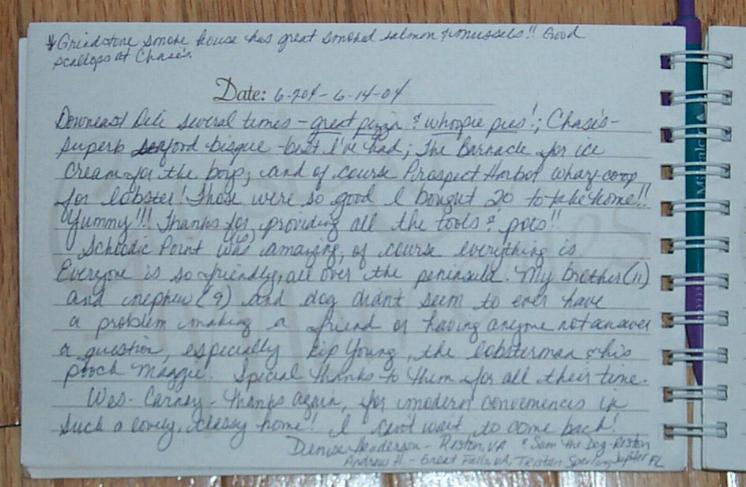 *Grindstone smoke house has great smoked salmon & mussels!! Good
scallops at Chase's.
Date: 6-7-04 - 6-14-04
Downeast Deli several times - great pizza & whoopie pies!; Chase's -
superb seafood bisque - best I've had; The Barnacle for ice
cream for the boys; and of course Prospect Harbor wharf coop
for lobster! Those were so good I bought 20 to take home!!
Yummy!!! Thanks for providing all the tools & pots!!
Schoodic Point was amazing, of course everything is
Everyone is so friendly, all over the peninsula. My brother (11)
and nephew (9) and dog didn't seem to ever have
a problem making a friend or having anyone not answer
a question, especially Kip Young, the lobsterman & his
pooch Maggie. Special thanks to them for all their time.
Wes-Carney - Thanks again, for modern conveniences in
such a lovely, classy home! I can't wait to come back!
Denise Henderson - Reston, VA & Sam the Dog - Reston
Andrew H - Great Falls, VA, Tristan Jupiter FL